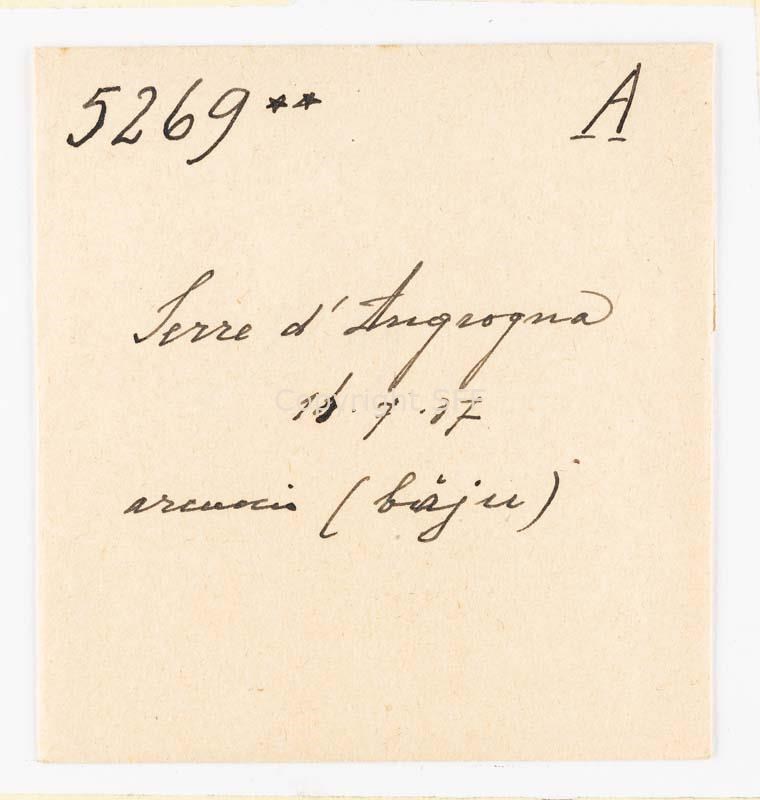 5269** A
Serre d'Angrogna
18.7.37
arcuccio (bāju)
Copyright SFF